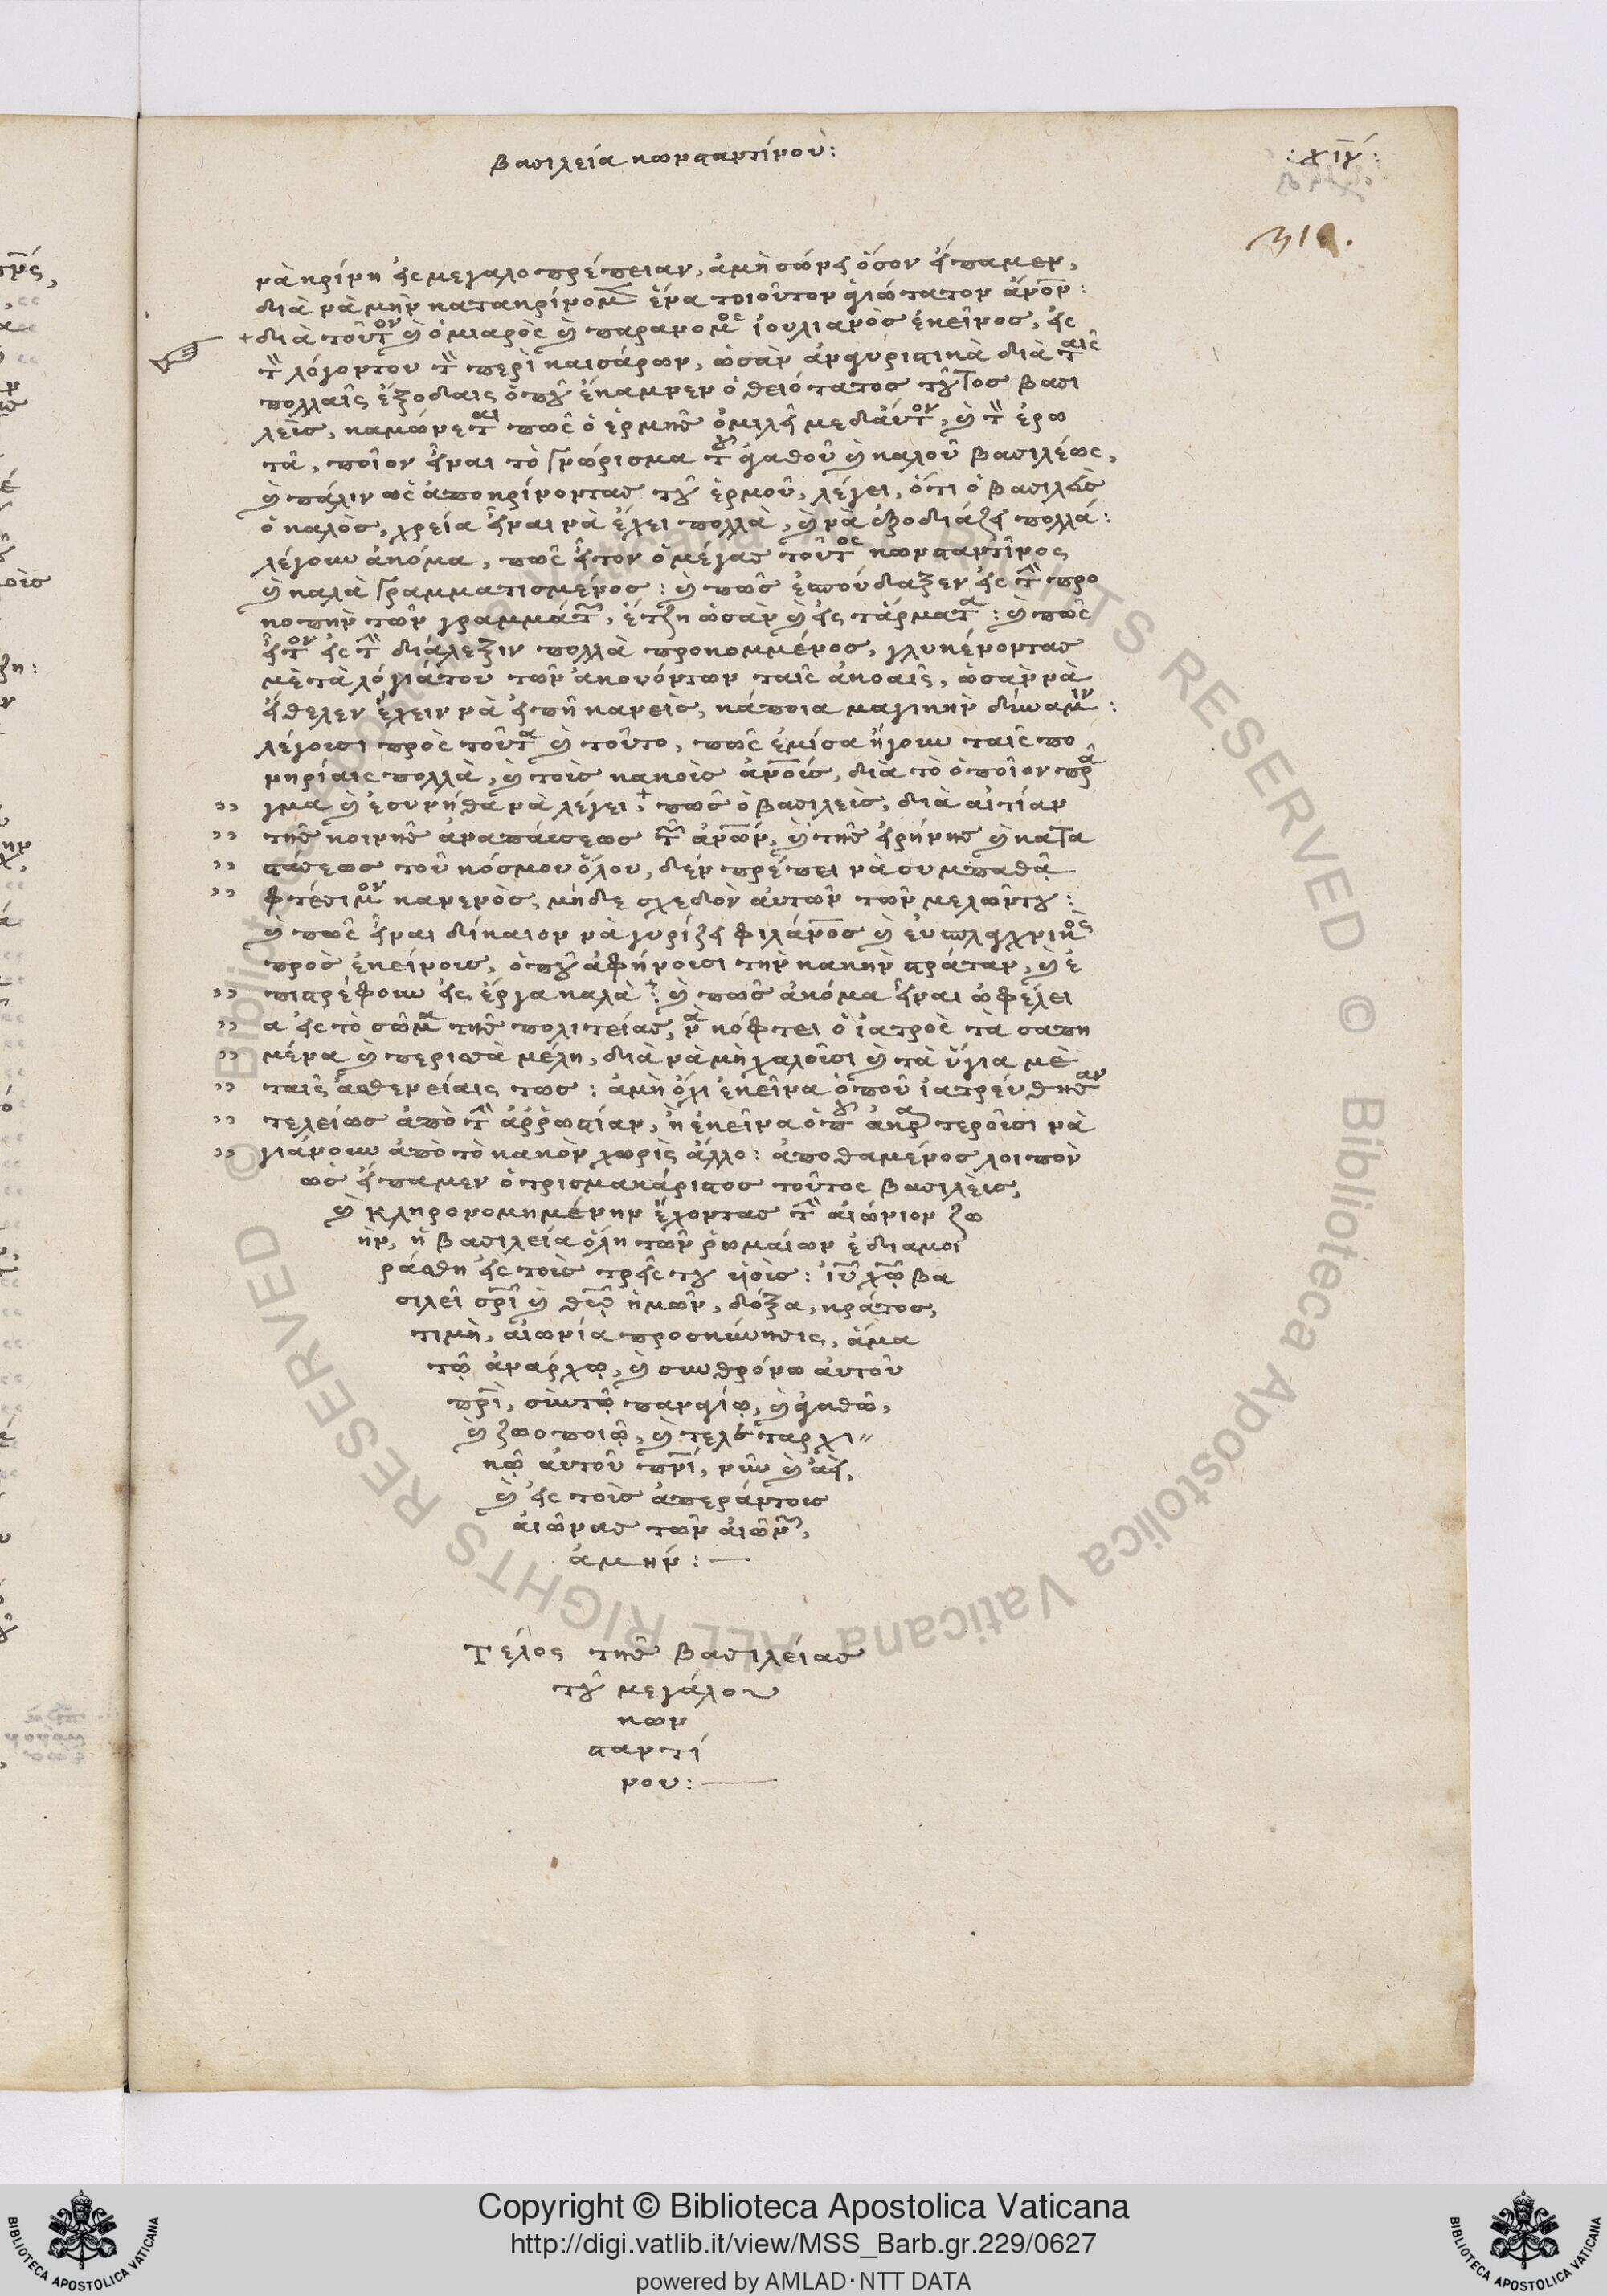 βασιλεία κωνσταντίνου:
:χιγ́:
319.
νὰ κρίνῃ εἰς μεγαλοπρέπειαν, ἀμὴ σώνει ὅσον εἴπαμεν,
διὰ νὰ μὴν κατακρίνομεν ἕνα τοιοῦτον ἁγιώτατον ἄνον:
+ διὰ τοῦτον καὶ ὁ μιαρὸς καὶ παράνομος ἰουλιανὸς ἐκεῖνος, εἰς
τὸν λόγον του τὸν περὶ καισάρων, ὡσὰν ἀνχυριστικὰ διὰ ταῖς
πολλαῖς ἐξοδίαις ὁποῦ ἔκαμνεν ὁ θειότατος τοῦτος βασι
λεὺς, καμώνεται πῶς ὁ ἑρμῆς ὁμιλεῖ μεδαὐτον, καὶ τὸν ἐρω
τᾶ, ποῖον εἶναι τὸ γνώρισμα τοῦ ἀγαθοῦ καὶ καλοῦ βασιλέως,
καὶ πάλιν ὡς ἀποκρίνοντας τοῦ ἑρμοῦ, λέγει, ὅτι ὁ βασιλεὺς
ὁ καλὸς, χρεία εἶναι νὰ ἔχει πολλὰ, καὶ νὰ ἐξοδιάζει πολλά:
λέγουν ἀκόμα, πῶς εἶτον ὁ μέγας τοῦτος κωνσταντῖνος
καὶ καλὰ γραμματισμένος: καὶ πῶς ἐσπούδαξεν εἰς τὴν προ
κοπὴν τῶν γραμμάτων, ἔτζη ὡσὰν καὶ εἰς τἄρματα: καὶ πῶς
εἶτον εἰς τὴν διάλεξιν πολλὰ προκομμένος, γλυκένοντας
μὲ τὰ λόγιάτου τῶν ἀκουόντων ταῖς ἀκοαῖς, ὡσὰν νὰ
εἴθελεν ἔχειν νὰ εἰπῇ κανεὶς, κάποια μαγικὴν δύναμιν:
λέγουσι πρὸς τοῦτα καὶ τοῦτο, πῶς ἐμίσα ἤγουν ταῖς πο
νηρίαις πολλὰ, καὶ τοὺς κακοὺς ἀνοὺς, διὰ τὸ ὁποῖον πρᾶ
,, γμα καὶ ἐσυνήθα νὰ λέγει,+ πῶς ὁ βασιλεὺς, διὰ αἰτίαν
,, τῆς κοινῆς ἀναπαύσεως τῶν ἀνων, καὶ τῆς εἰρήνης καὶ κατα
,, στάσεως τοῦ κόσμου ὅλου, δὲν πρέπει νὰ συμπαθᾷ
,, φτέσιμον κανενὸς, μήδε σχεδὸν αὐτῶν τῶν μελῶντου:
καὶ πῶς εἶναι δίκαιον νὰ γυρίζει φιλάνος καὶ εὐσπλαγχνικὸς
πρὸς ἐκείνους, ὁποῦ ἀφήνουσι τὴν κακὴν στράταν, καὶ ἐ
,, πιστρέφουν εἰς ἔργα καλὰ+: καὶ πῶς ἀκόμα εἶναι ὠφέλει
,, α εἰς τὸ σῶμα τῆς πολιτείας, νὰ κόφτει ὁ ἰατρὸς τὰ σαπη
,, μένα καὶ περισσὰ μέλη, διὰ νὰ μὴ χαλοῦσι καὶ τὰ ὕγια μὲ
,, ταῖς ἀσθενείαις τως: ἀμὴ ὄχι ἐκεῖνα ὁποῦ ἰατρεύθησαν
,, τελείως ἀπὸ τὴν ἀῤῥωστίαν, ἢ ἐκεῖνα ὁποῦ ἀκρατεροῦσι νὰ
,, γιάνουν ἀπὸ τὸ κακὸν χωρὶς ἄλλο: ἀποθαμένος λοιπὸν
ὡς εἴπαμεν ὁ τρισμακάριστος τοῦτος βασιλεὺς,
καὶ κληρονομημένην ἔχοντας τὴν αἰώνιον ζω
ὴν, ἡ βασιλεία ὅλη τῶν ῥωμαίων ἐδιαμοι
ράσθη εἰς τοὺς τρεῖς του υἱούς: ἰυ χῶ βα
σιλεῖ σρι καὶ θεῷ ἡμῶν, δόξα, κράτος,
τιμὴ, αἰωνία προσκύνησις, ἅμα
τῷ ἀνάρχῳ, καὶ συνθρόνω αὐτοῦ
πρι, σὺν τῷ παναγίῳ, καὶ ἀγαθῶ,
καὶ ζωοποιῷ, καὶ τελεταρχι
κῷ αὐτοῦ πνι, νῦν καὶ ἀεὶ,
καὶ εἰς τοὺς ἀπεράντους
αἰῶνας τῶν αἰώνων,
ἀμήν:—
Τέλος τῆς βασιλείας
τοῦ μεγάλου
κων
σταντί
νου:—
Copyright © Biblioteca Apostolica Vaticana
http://digi.vatlib.it/view/MSS_Barb.gr.229/0627
powered by AMLAD·NTT DATA